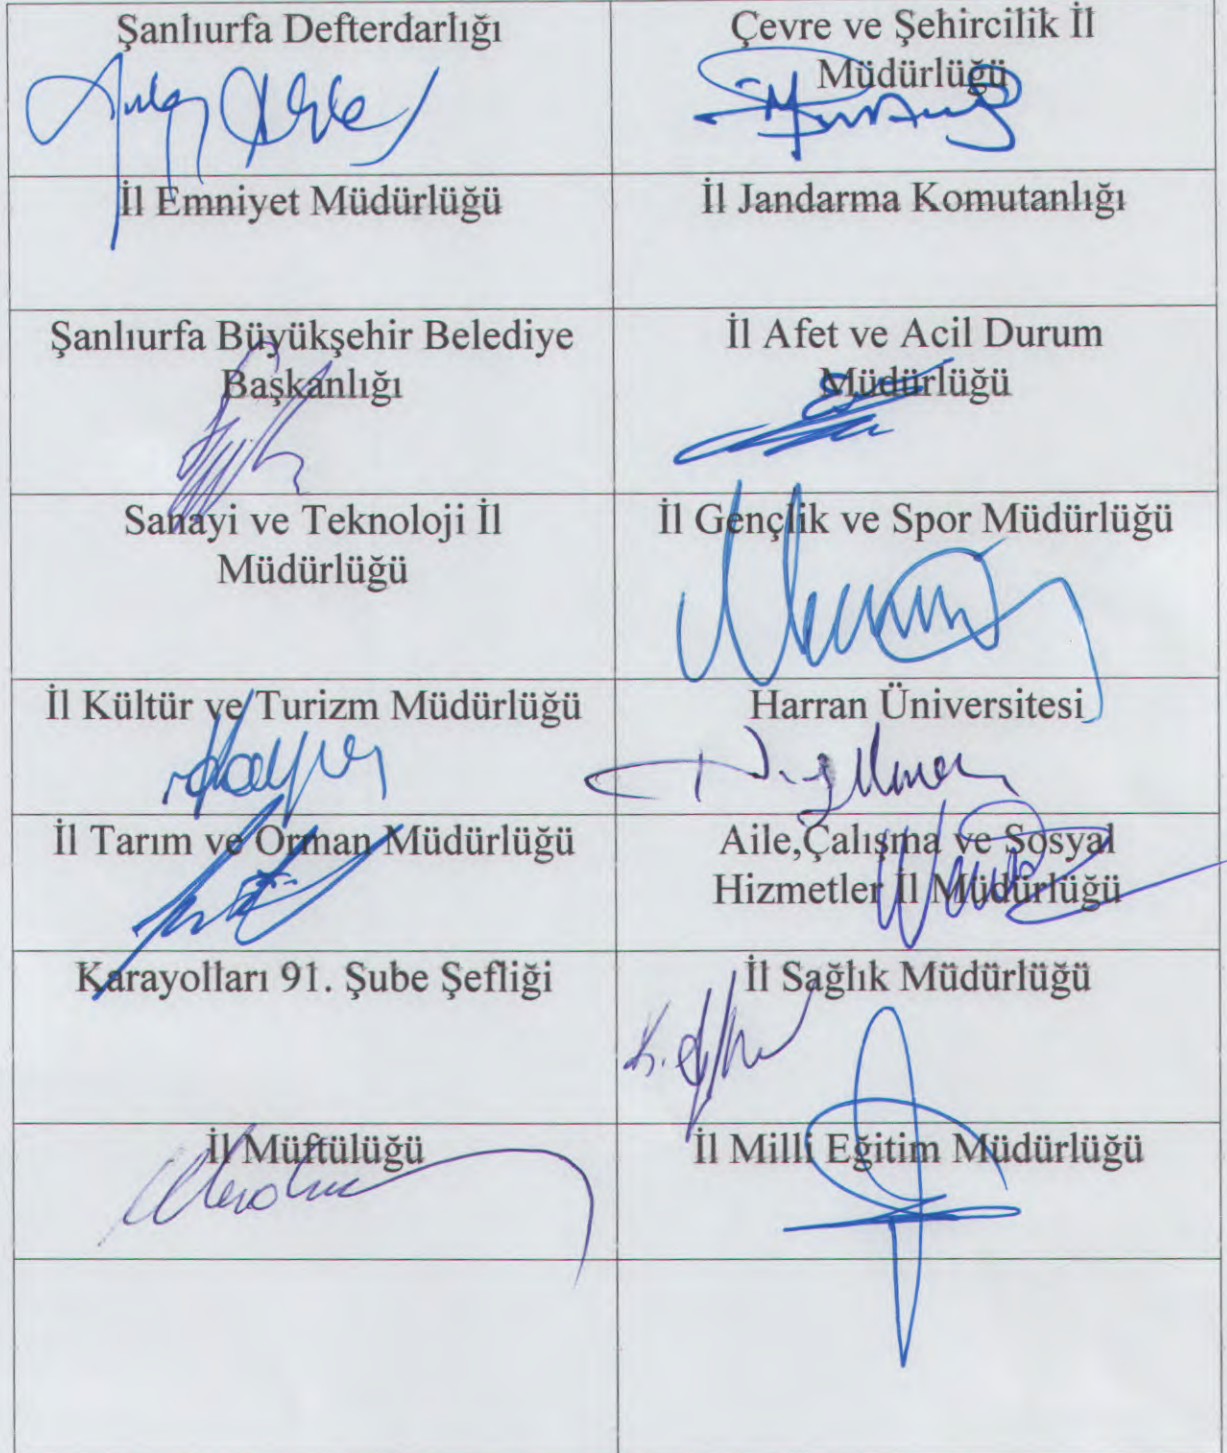 Şanlıurfa Defterdarlığı
Çevre ve Şehircilik İl
Müdürlüğü
İl Emniyet Müdürlüğü
İl Jandarma Komutanlığı
Şanlıurfa Büyükşehir Belediye
Başkanlığı
İl Afet ve Acil Durum
Müdürlüğü
Sanayi ve Teknoloji İl
Müdürlüğü
İl Gençlik ve Spor Müdürlüğü
İl Kültür ve Turizm Müdürlüğü
Harran Üniversitesi
İl Tarım ve Orman Müdürlüğü
Aile,Çalışma ve Sosyal
Hizmetler İl Müdürlüğü
Karayolları 91. Şube Şefliği
İl Sağlık Müdürlüğü
İl Müftülüğü
İl Milli Eğitim Müdürlüğü